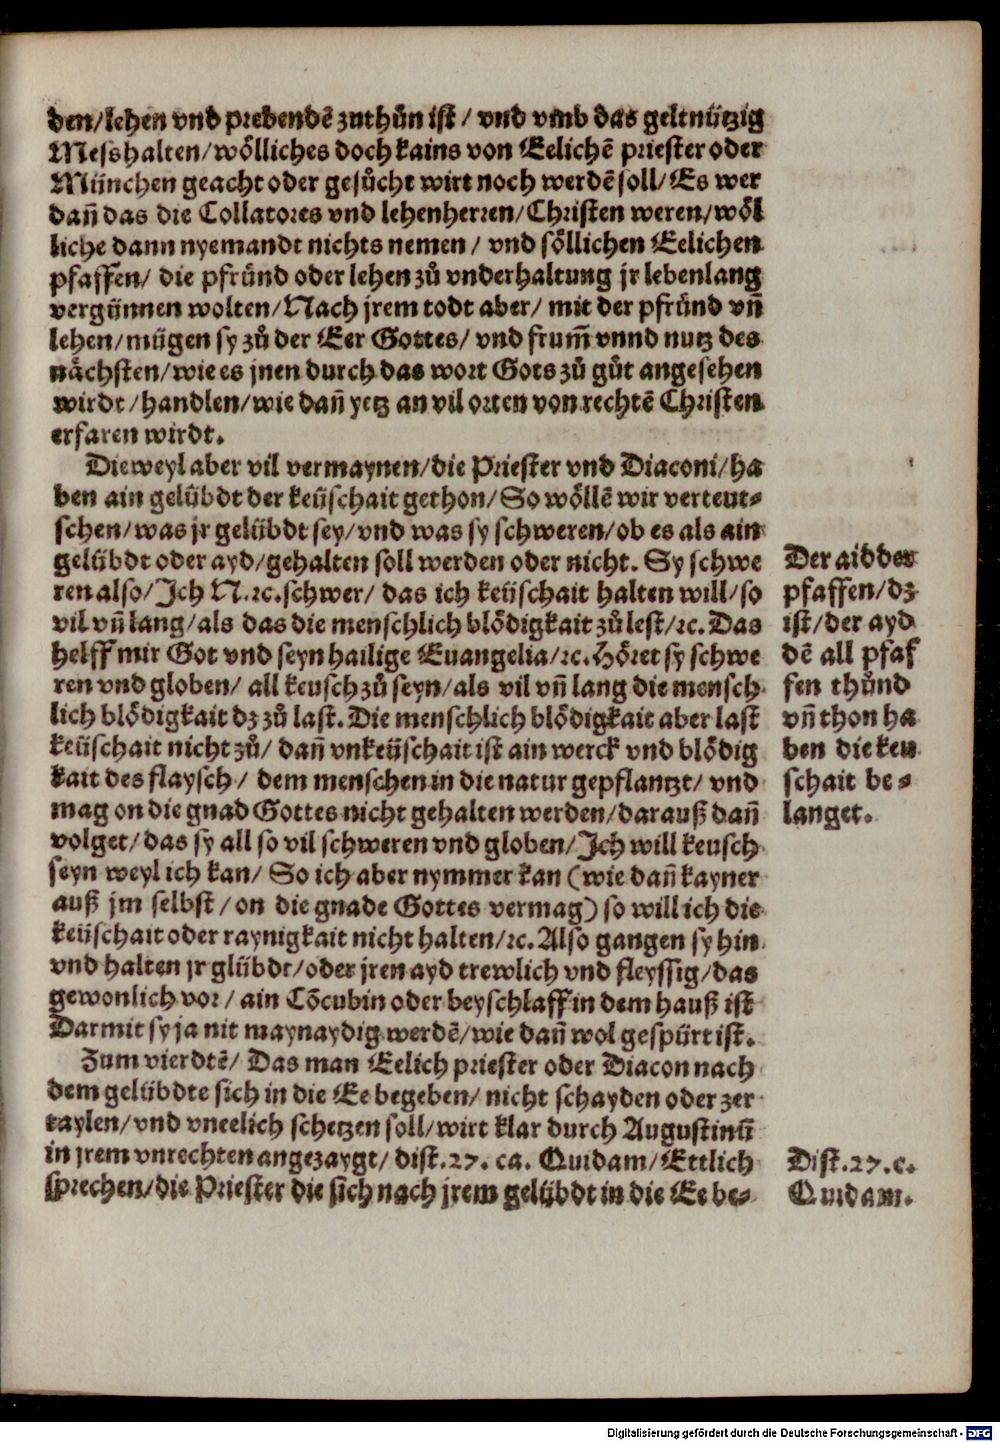 den/lehen vnd prebendē zuthůn ist / vnd vmb das geltnützig
Messhalten/wölliches doch kains von Eelichē priester oder
München geacht oder gesůcht wirt noch werdē soll/Es wer
dañ das die Collatores vnd lehenherren/Christen weren/wöl
liche dann nyemandt nichts nemen / vnd söllichen Eelichen
pfaffen/ die pfründ oder lehen zů vnderhaltung jr lebenlang
vergünnen wolten/Nach jrem todt aber/ mit der pfründ vñ
lehen/mügen sy zů der Eer Gottes/ vnd frum̃ vnnd nutz des
nächsten/wie es jnen durch das wort Gots zů gůt angesehen
wirdt/handlen/wie dañ yetz an vil orten von rechtē Christen
erfaren wirdt.
Dieweyl aber vil vermaynen/die Priester vnd Diaconi/ha
ben ain gelübdt der keüschait gethon/So wöllē wir verteut-
schen/was jr gelübdt sey/vnd was sy schweren/ob es als ain
gelübdt oder ayd/gehalten soll werden oder nicht. Sy schwe
ren also/Jch N.ꝛc.schwer/ das ich keüschait halten will/so
vil vñ lang/als das die menschlich blödigkait zů lest/ꝛc. Das
helff mir Got vnd seyn hailige Euangelia/ꝛc. Höret sy schwe
ren vnd globen/ all keusch zů seyn/als vil vñ lang die mensch
lich blödigkait dz zů last. Die menschlich blödigkait aber last
keüschait nicht zů/ dañ vnkeüschait ist ain werck vnd blödig
kait des flaysch / dem menschen in die natur gepflantzt/ vnd
mag on die gnad Gottes nicht gehalten werden/darauß dañ
volget/das sy all so vil schweren vnd globen/Jch will keusch
seyn weyl ich kan/ So ich aber nymmer kan (wie dañ kayner
auß jm selbst / on die gnade Gottes vermag) so will ich die
keüschait oder raynigkait nicht halten/ꝛc. Also gangen sy hin
vnd halten jr glübdt/oder jren ayd trewlich vnd fleyssig/das
gewonlich vor / ain Cōcubin oder beyschlaff in dem hauß ist
Darmit sy ja nit maynaydig werdē/wie dañ wol gespürt ist.
Zum vierdtē/ Das man Eelich priester oder Diacon nach
dem gelübdte sich in die Ee begeben/ nicht schayden oder zer
taylen/vnd vneelich schetzen soll/wirt klar durch Augustinū
in jrem vnrechten angezaygt/ dist.27. ca. Quidam/Ettlich
sprechen/die Priester die sich nach jrem gelübdt in die Ee be-
Der aid des
pfaffen/dz
ist/der ayd
dē all pfaf
fen thůnd
vñ thon ha
ben die keu
schait be-
langet.
Dist.27.c.
Quidam.
Digitalisierung gefördert durch die Deutsche Forschungsgemeinschaft - DFG